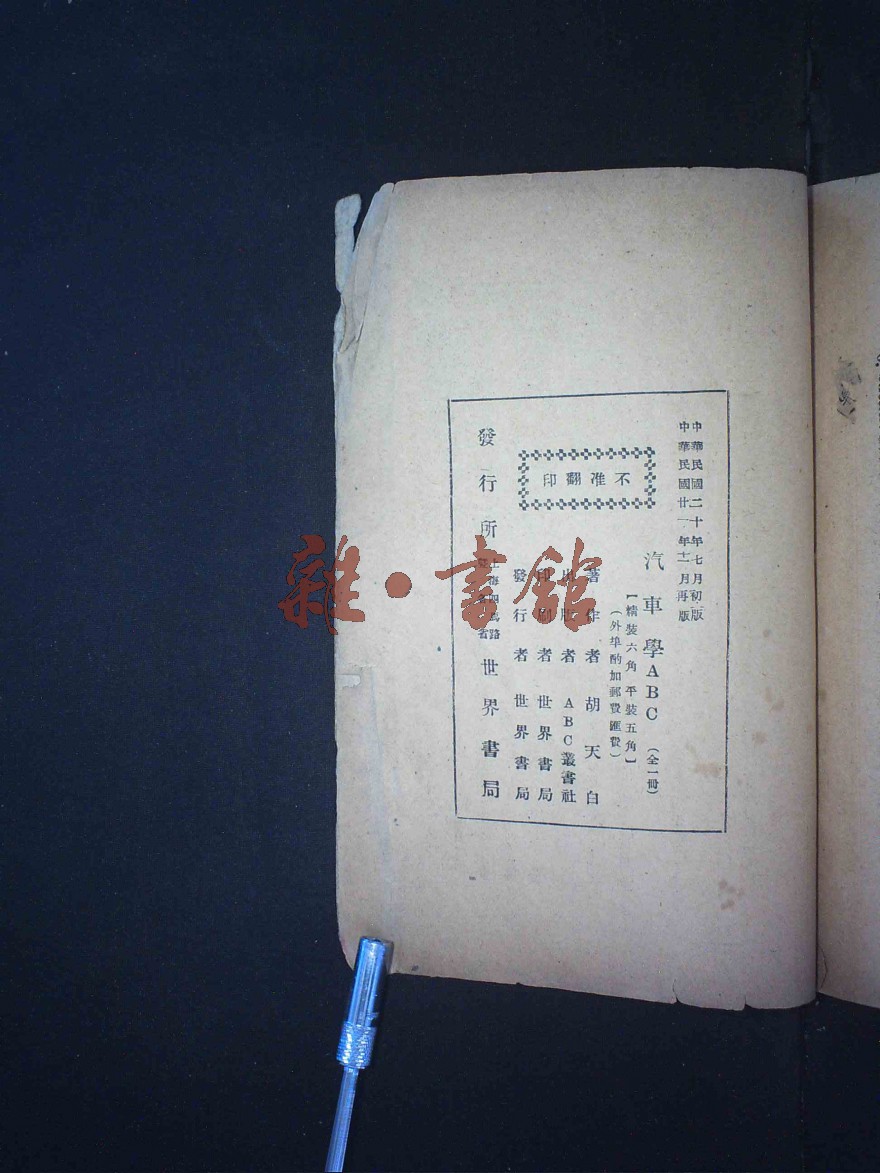 中華民國二十年七月初版
中華民國廿一年十一月再版
汽車學ABC（全一冊）
【精裝六角 平裝五角】
（外埠酌加郵費匯費）
不准翻印
著作者 胡天白
出版者 ABC叢書社
印刷者 世界書局
發行者 世界書局
發行所 世界書局
雜·書館